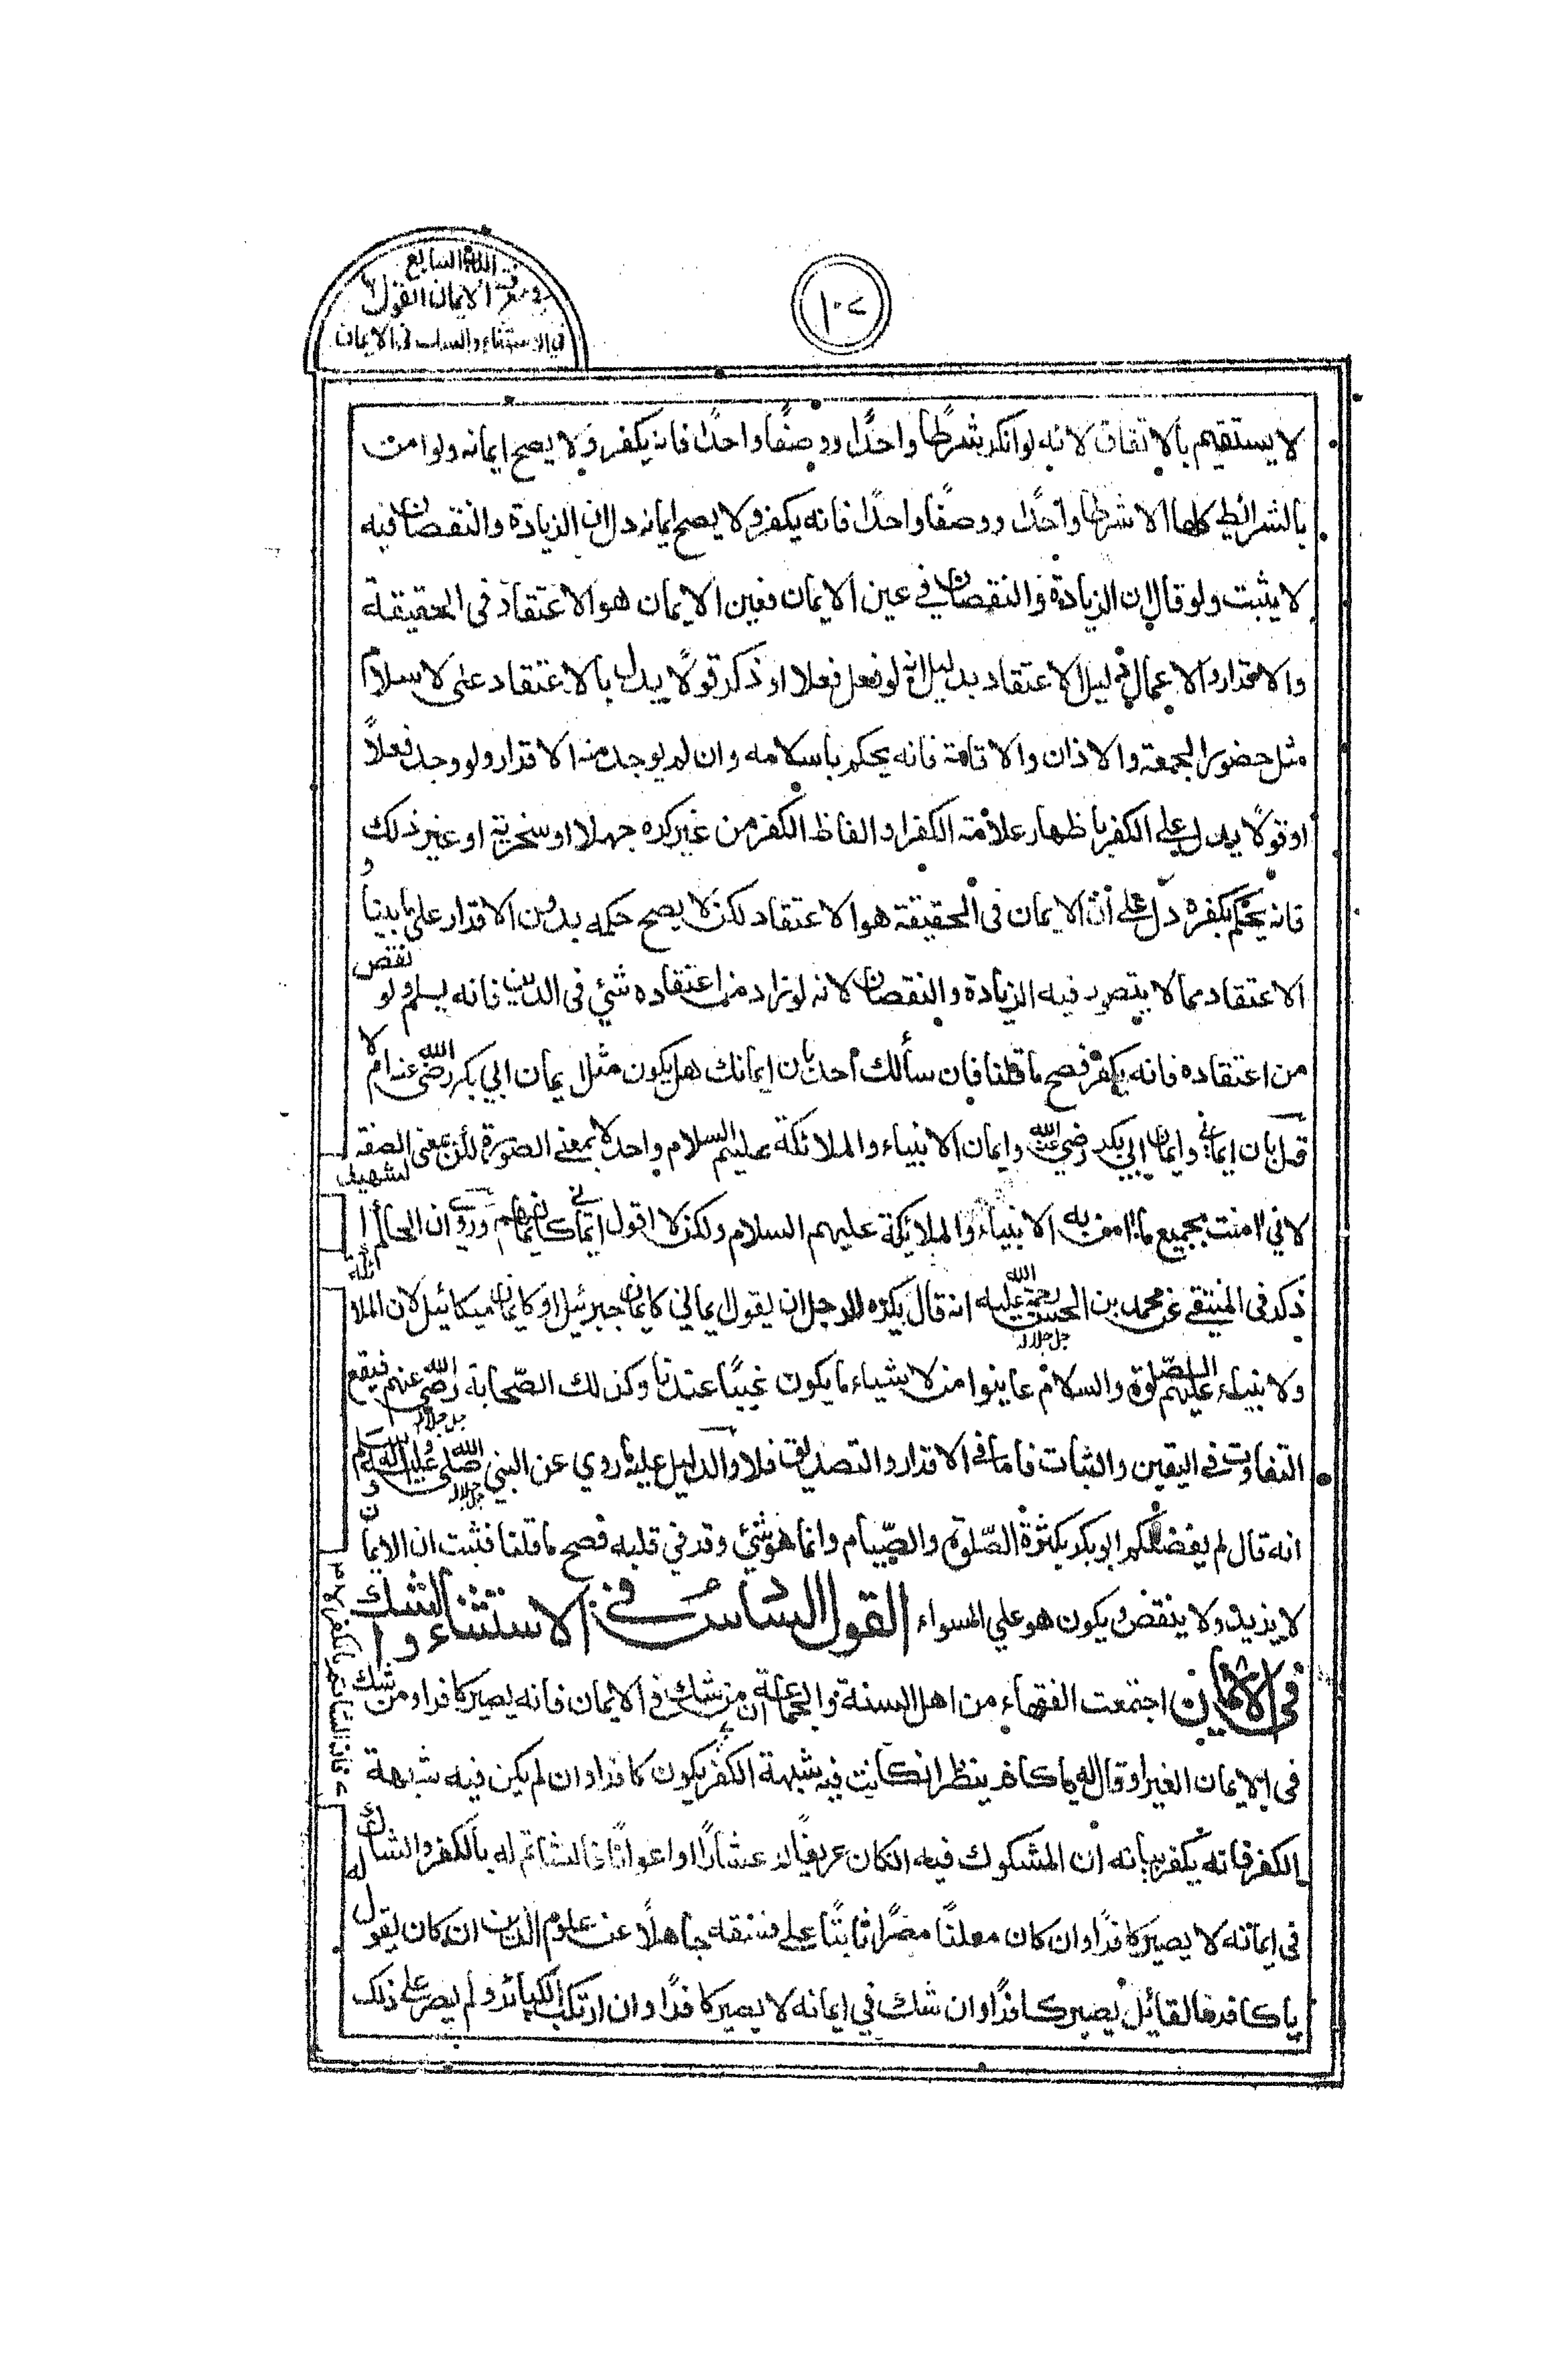 السابع
في معرفة الايمان القول
في الاستثناء والشك في الايمان
١٠٧
لا يستقيم بالاتفاق لانه لو انكر شرطا واحدًا ووصفًا واحدًا فانه يكفر ولا يصح ايمانه ولو امن
بالشرائط كلها الا شرطا واحدًا ووصفًا واحدًا فانه يكفر ولا يصح ايمانه دل ان الزيادة والنقصان فيه
لا يثبت ولو قال ان الزيادة والنقصان في عين الايمان فعين الايمان هو الاعتقاد فى الحقيقة
والاقرار والاعمال دليل الاعتقاد بدليل انه لو فعل فعلا او ذكر قولًا يدل بالاعتقاد على لاسلام
مثل حضور الجمعة والاذان والاقامة فانه يحكم باسلامه وان لم يوجد منه الاقرار ولو وجد فعلاً
او قولًا يدل على الكفر باظهار علامة الكفر او الفاظ الكفر من غير كره جهلا او سخرية او غير ذلك
فانه يحكم بكفره دل على أن الايمان فى الحقيقة هو الاعتقاد لكن لا يصح حكمه بدون الاقرار على ما بينا و
الاعتقاد مما لا يتصور فيه الزيادة والنقصان لانه لو زاد من اعتقاده شئ فى الدين فانه يسلم ولو نقص
من اعتقاده فانه يكفر فصح ما قلنا فان سألك أحد بان ايمانك هل يكون مثل ايمان ابي بكر رضى الله عنه ام لا
قل بان ايماني وايمان ابي بكر رضي الله عنه وايمان الانبياء والملائكة عليهم السلام واحد لا بمعنى الصورة لكن بمعنى الصفة
لاني امنت بجميع ما امن به الانبياء والملائكة عليهم السلام ولكن لا اقول ايماني كايمانهم وروي ان الحاكم الشهيد
ذكر فى المنتقى عن محمد بن الحسن رحمة الله عليه انه قال يكره للرجل ان يقول ايماني كايمان جبرئيل او كايمان ميكائيل لان الملائكة
ولانبياء عليهم الصلوة والسلام عاينوا من لاشياء ما يكون غيبًا عندنا وكذلك الصّحابة رضى الله عنهم فيقع
التفاوت فى اليقين والثبات فاما فى الاقرار والتصديق فلا والدليل عليه ما روي عن النبي صلى الله عليه وسلم
انه قال لم يفضلكم ابو بكر بكثرة الصّلوة والصّيام وانما هو شئ وقر في قلبه فصح ما قلنا فثبت ان الايمان
لا يزيد ولا ينقص ويكون هو علي السواء القول السادس فى الاستثناء والشك
فى الايمان اجتمعت الفقهاء من اهل السنة والجماعة ان من شك فى الايمان فانه يصير كافرا ومن شك
فى ايمان الغير او قال له يا كافر ينظر ان كانت فيه شبهة الكفر يكون كافرا وان لم يكن فيه شبهة
الكفر فانه يكفر بيانه ان المشكوك فيه ان كان عريفًا او عشارًا او اعوانًا فالشاتم له بالكفر والشاك له
فى ايمانه لا يصير كافرًا وان كان معلنًا مصرًا ثابتًا على فسقه جاهلًا عن علوم الدين ان كان يقول
يا كافر فالقائل يصير كافرًا وان شك في ايمانه لا يصير كافرًا وان ارتكب الكبائر ولم يصر على ذلك